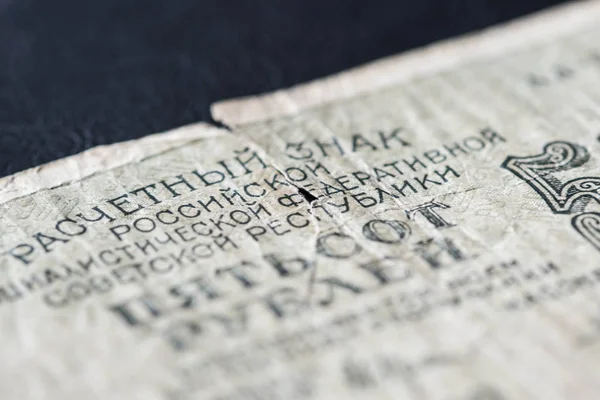 РАСЧЕТНЫЙ ЗНАК
РОССИЙСКОЙ
СОЦИАЛИСТИЧЕСКОЙ ФЕДЕРАТИВНОЙ
СОВЕТСКОЙ РЕСПУБЛИКИ
5
ПЯТЬСОТ
РУБЛЕЙ